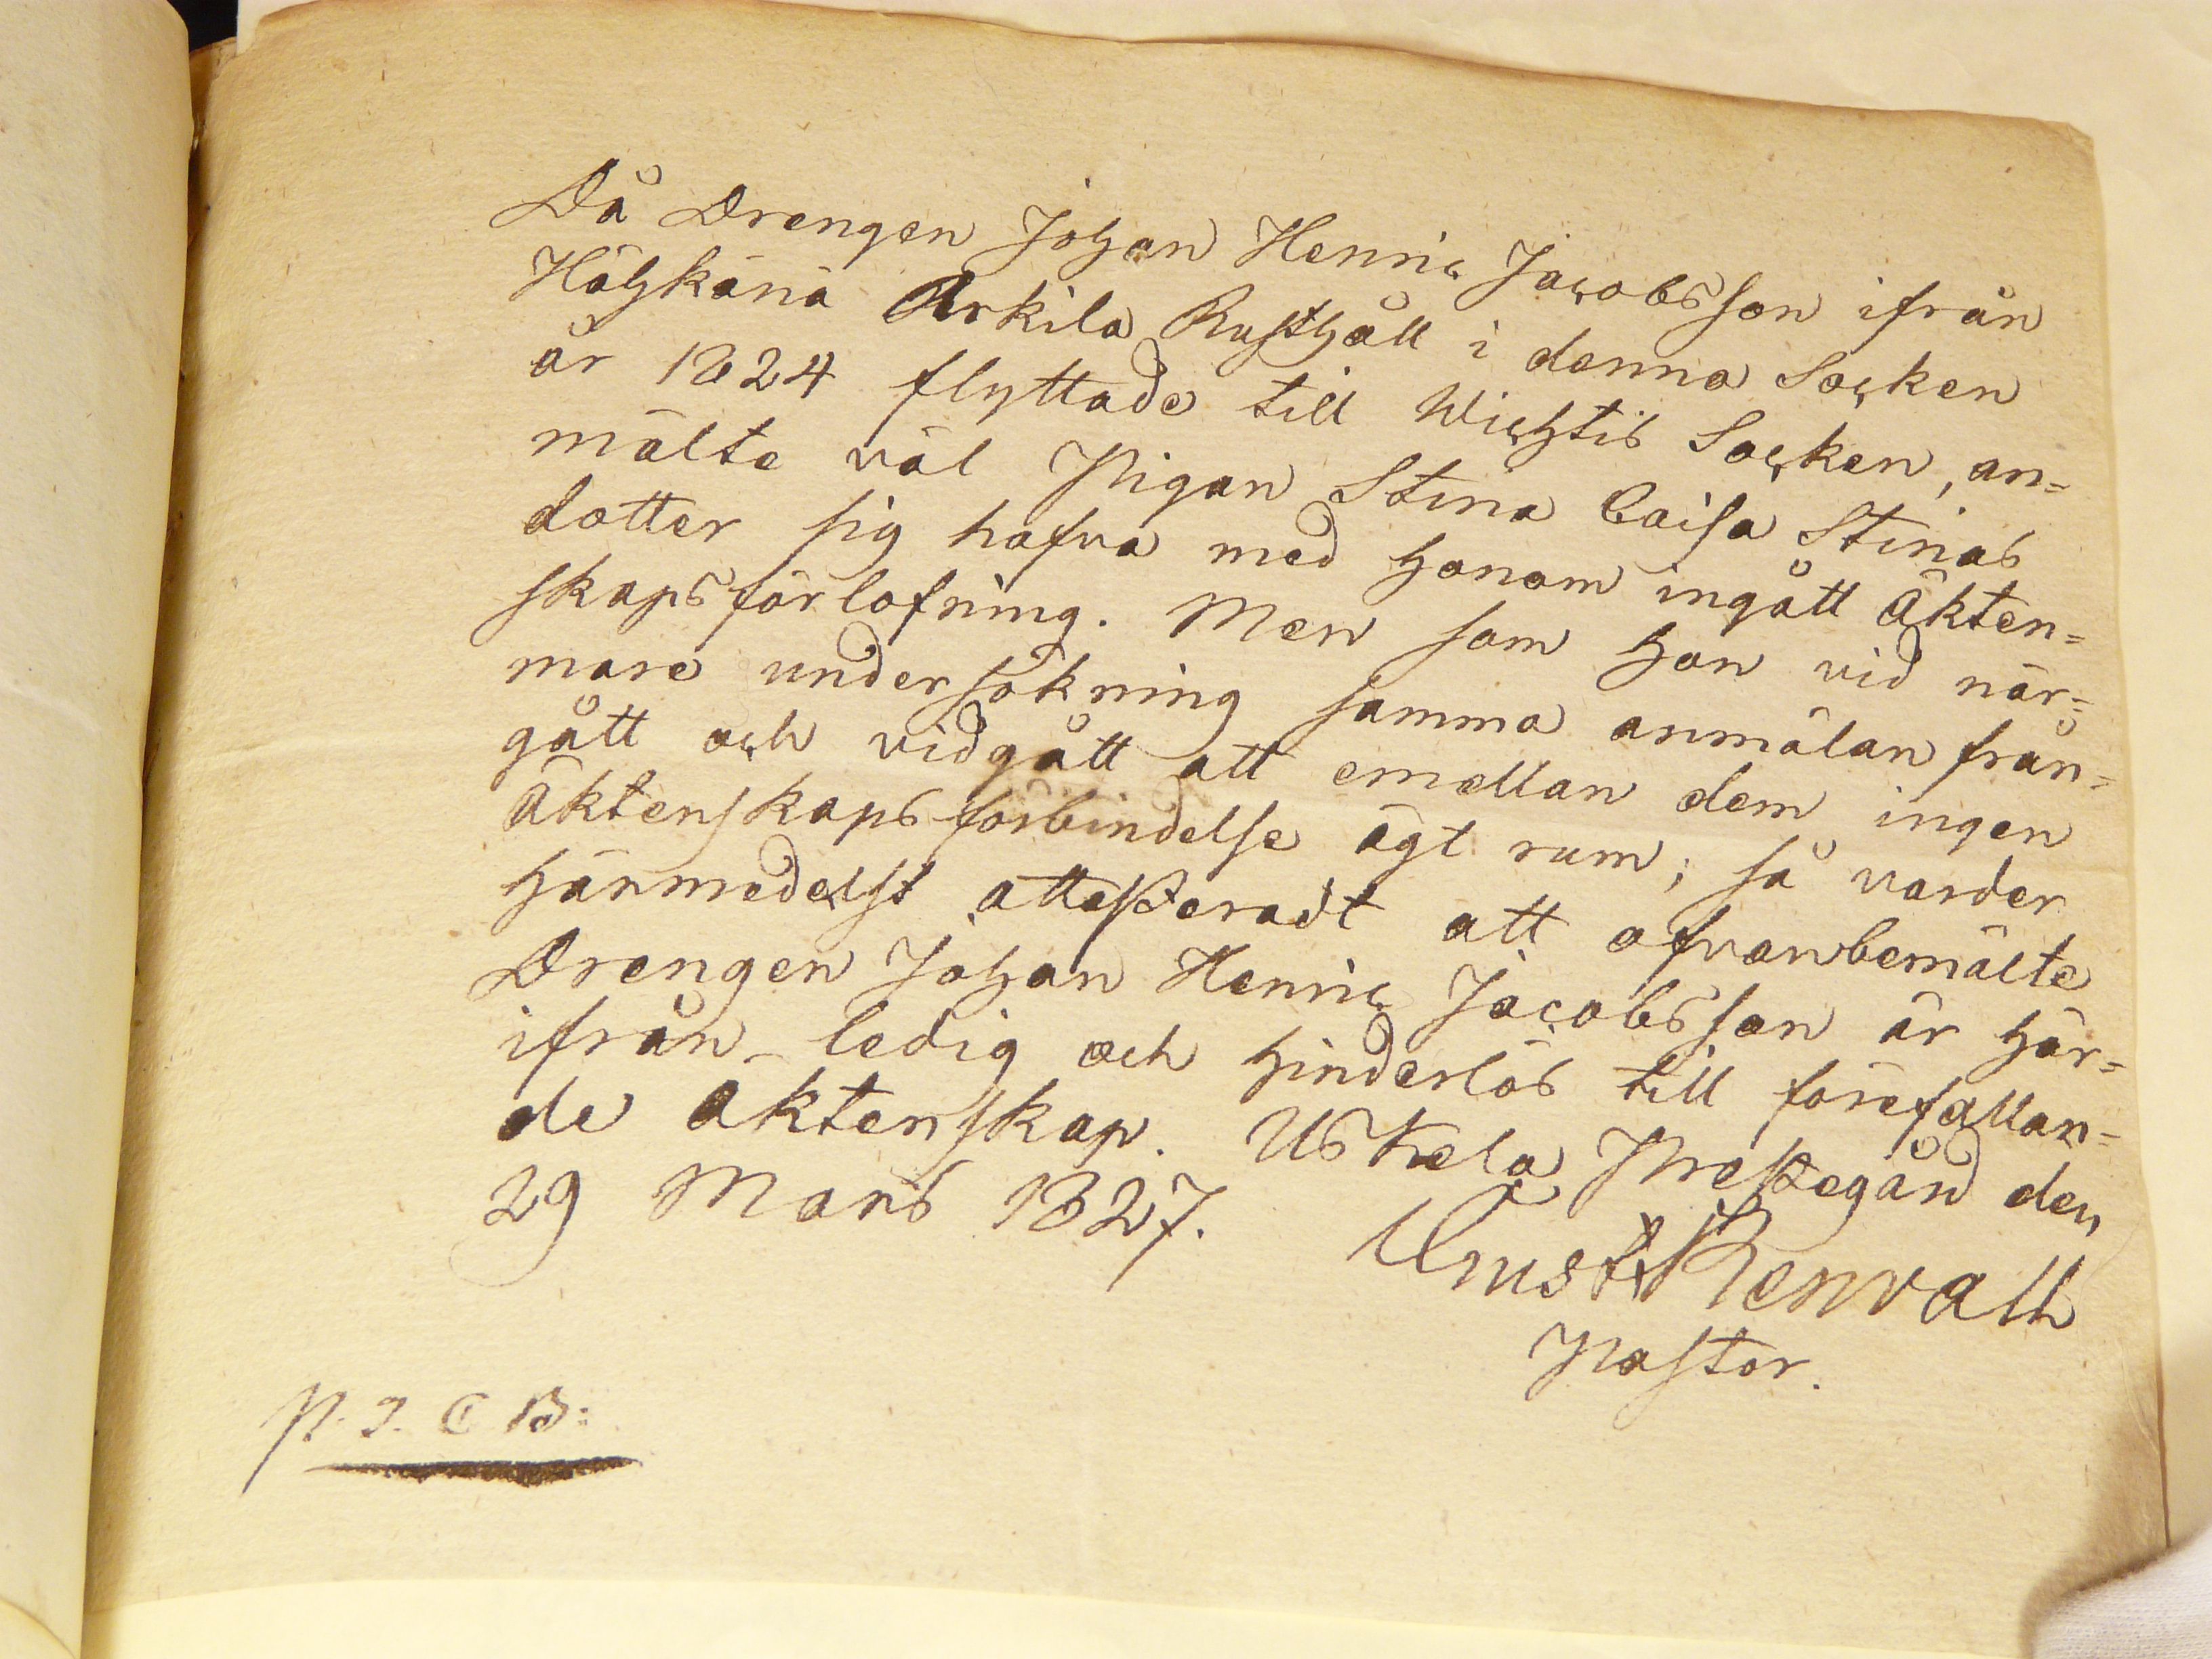 Då Drengen Johan Henric Jacobsson ifrån
Häykänä Arkila Rusthåll i denna Socken
år 1824 flyttade till Wichtis Socken, an=
mälte väl Pigan Stina Caisa Stinas
dotter sig hafva med honom ingått Äkten=
skapsförlofning. Men som hon vid när=
mare undersökning samma anmälan från=
gått och vidgått att emellan dem ingen
Äktenskapsförbindelse ägt rum; så varder
härmedelst attesteradt att ofvanbemälte
Drengen Johan Henric Jacobsson är här=
ifrån ledig och hinderlös till förefallan=
de Äktenskap. Uskela Prestegård den
29 Mars 1827.
Renvall
Pastor.
P. I. C B: